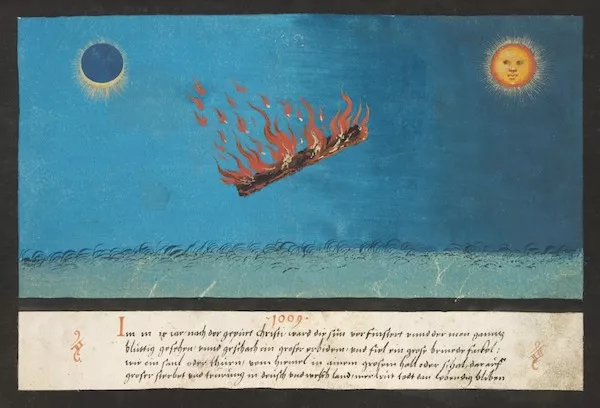 1009
Im m ix iar nach der gepurt christi ward die sun verfinstert vnnd der mon ganntz
blüttig gesehen, vnnd geschach ein groser erdbidem, vnd fiel ein gross brinnende fackel,
wie ein saul oder thurn, vom himel in ainem grosem hall oder schal, darauff
groser sterbet vnd teurung in deutsch vnd welsch land, mer leut todt dan lebendig bliben